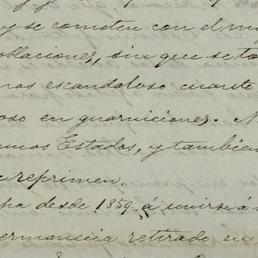 y se cometen con el m
oblaciones, sin que se to
mas escandaloso cuanto
oso en guarniciones. N
unos Estados, y tambien
se reprimen.
pa desde 1859. á unirse á
ermanecia retirado en